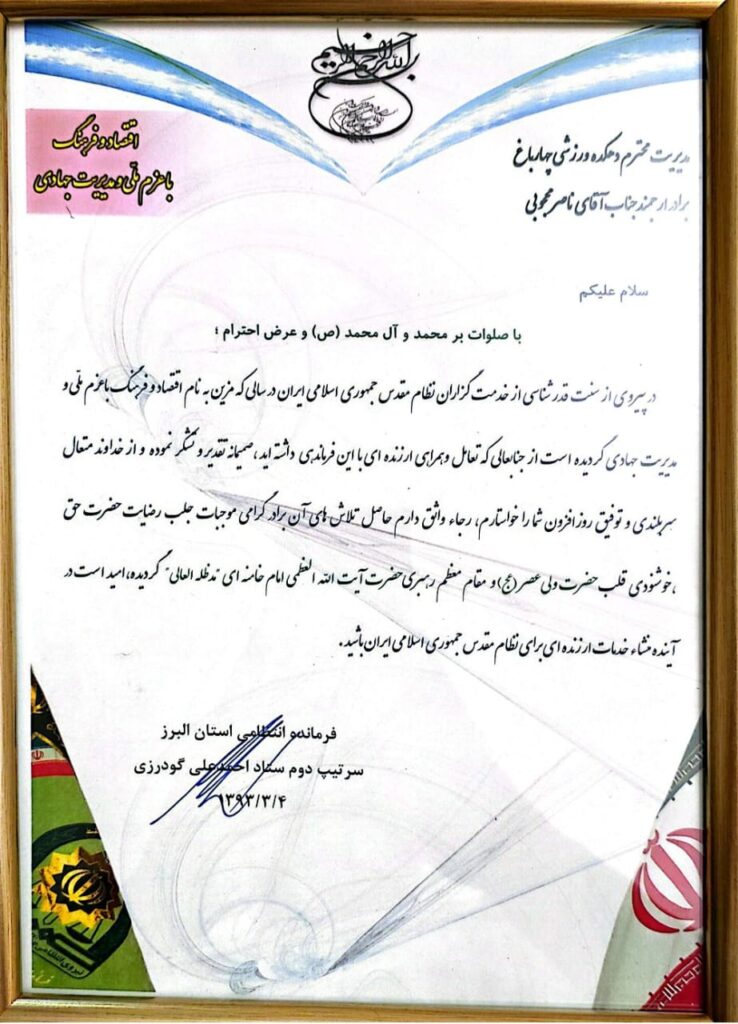 بسم الله الرحمن الرحیم
اقتصاد و فرهنگ
با عزم ملّی و مدیریت جهادی
مدیریت محترم دهکده ورزشی چهارباغ
برادر ارجمند جناب آقای ناصر محجوبی
سلام علیکم
با صلوات بر محمد و آل محمد (ص) و عرض احترام ؛
در پیروی از سنت قدرشناسی از خدمت گزاران نظام مقدس جمهوری اسلامی ایران در سالی که مزین به نام اقتصاد و فرهنگ با عزم ملّی و
مدیریت جهادی گردیده است از جنابعالی که تعامل و همراهی ارزنده ای با این فرماندهی داشته اید، صمیمانه تقدیر و تشکر نموده و از خداوند متعال
سربلندی و توفیق روزافزون شما را خواستارم، رجاء واثق دارم حاصل تلاش های آن برادر گرامی موجبات جلب رضایت حضرت حق
،خوشنودی قلب حضرت ولی عصر(عج)و مقام معظم رهبری حضرت آیت الله العظمی امام خامنه ای "مدظله العالی" گردیده، امید است در
آینده منشاء خدمات ارزنده ای برای نظام مقدس جمهوری اسلامی ایران باشید.
فرمانده انتظامی استان البرز
سرتیپ دوم ستاد احمدعلی گودرزی
۱۳۹۳/۳/۴